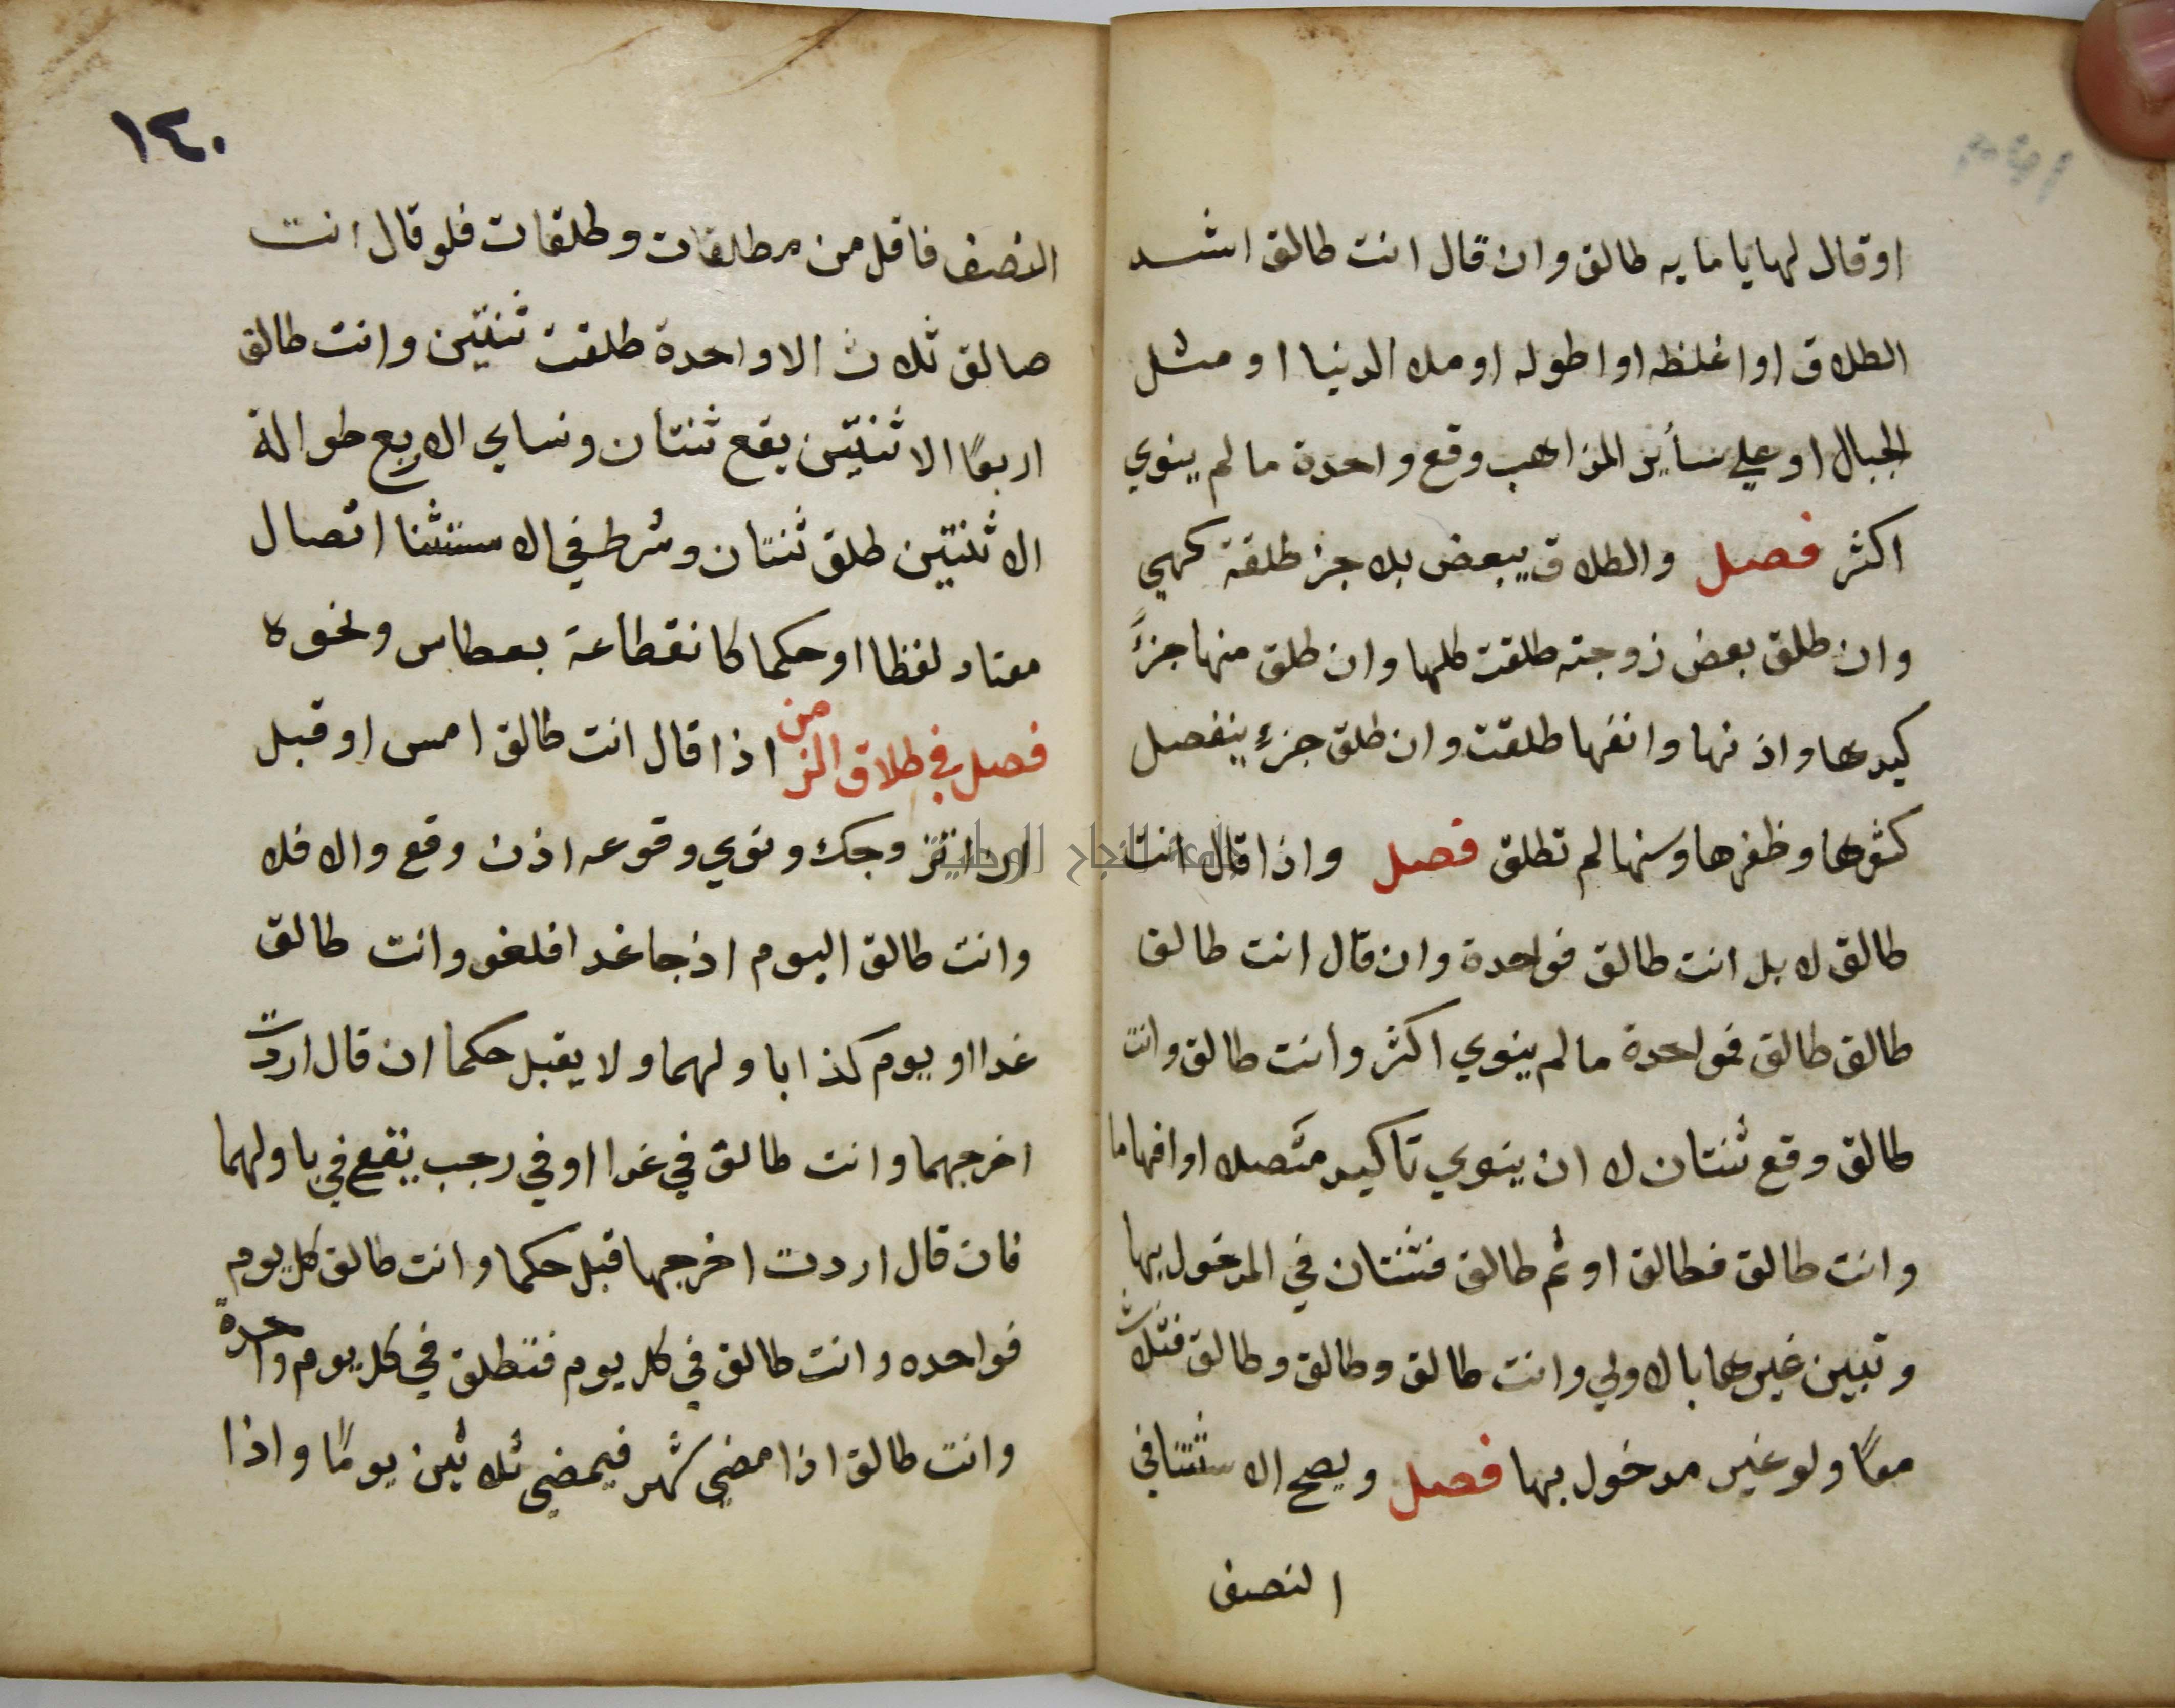 او قال لها يا مايه طالق وان قال انت طالق اشد
الطلاق او اغلظه او اطوله او ملا الدنيا او مثل
الجبال او علي سأير المذاهب وقع واحدة ما لم ينوي
اكثر فصل والطلاق يبعض بلا جز طلقة كهي
وان طلق بعض زوجته طلقت كلها وان طلق منها جزءً
كيدها واذنها وانفها طلقت وان طلق جزءٍ ينفصل
كشعرها وظفرها وسنها لم تطلق فصل واذا قال انت
طالق لا بل انت طالق فواحدة وان قال انت طالق
طالق طالق فواحدة ما لم ينوي اكثر وانت طالق وانت
طالق وقع ثنتان لا ان ينوي تاكيد متصلا او افهاما
وانت طالق فطالق او ثم طالق فثنتان في المدخول بها
وتبين غيرها بالاولي وانت طالق وطالق وطالق فثلاث
معًا ولو غير مدخول بها فصل ويصح الاستثنا في
النصف
١٢٠
النصف فاقل من مطلقات وطلقات فلو قال انت
صالق ثلاث الا واحدة طلقت ثنتين وانت طالق
اربعًا الا ثنتين يقع ثنتان ونساي الاربع طوالة
الا ثنتين طلق ثنتان وشرط في الاستثنا اتصال
معتاد لفظا او حكما كانقطاعة بعطاس ونحوه
فصل في طلاق الزمن اذا قال انت طالق امس او قبل
ان اتزوجك ونوي وقوعه اذن وقع والا فلا
وانت طالق اليوم اذ جا غدا فلغو وانت طالق
غدا او يوم كذا باولهما ولا يقبل حكما ان قال اردت
اخرجهما وانت طالق في غدا او في رجب يقع في باولهما
فان قال اردت اخرجها قبل حكما وانت طالق كل يوم
فواحده وانت طالق في كل يوم فتطلق في كل يوم واحدة
وانت طالق اذا مضي شهر فيمضي ثلاثين يومًا واذا